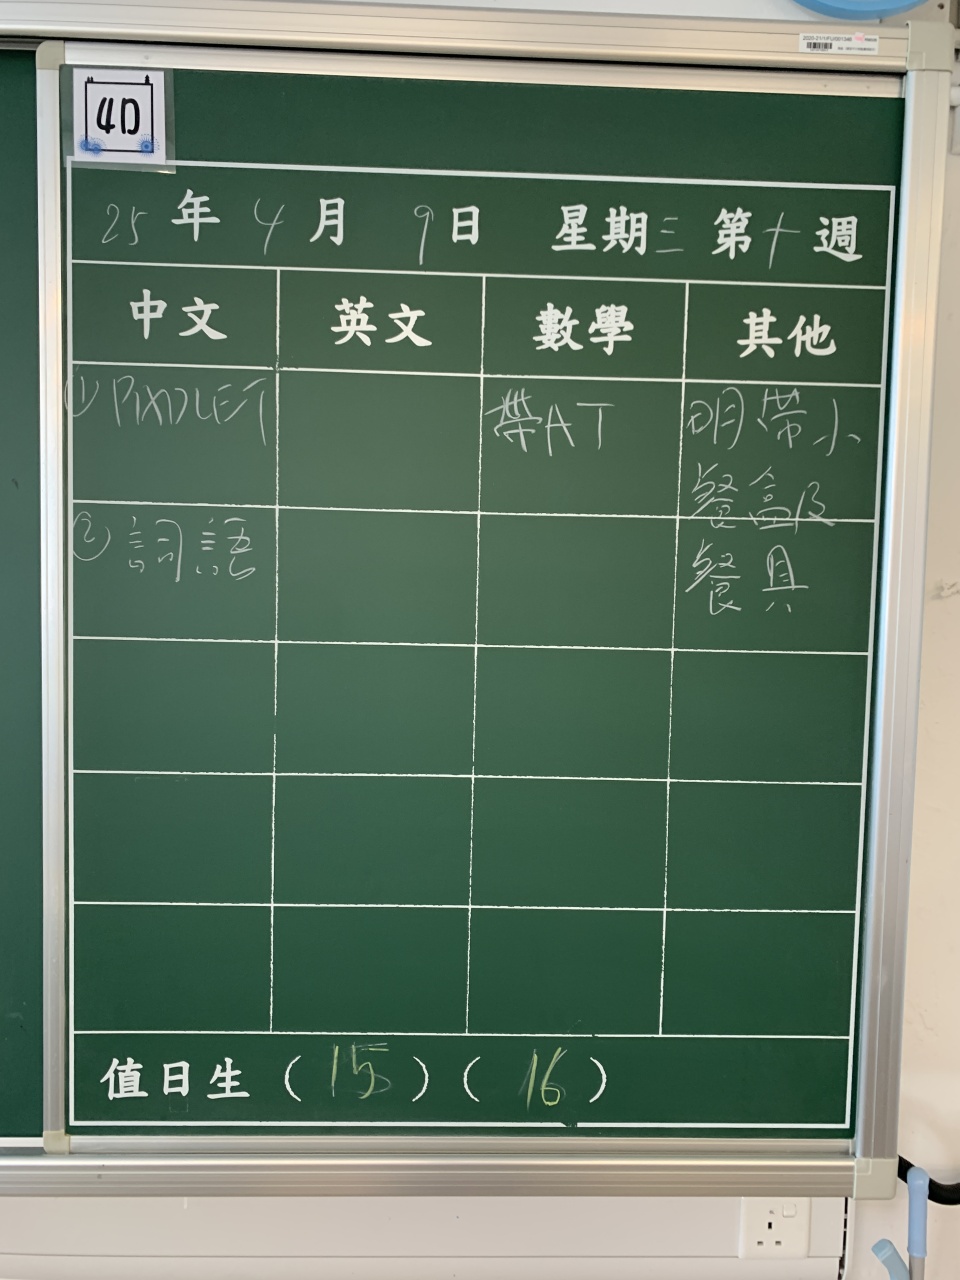 4D
25年4月9日 星期三 第十週
中文 英文 數學 其他
① PADLET
帶AT
明帶小
餐盒及
② 詞語
餐具
值日生（15）（16）